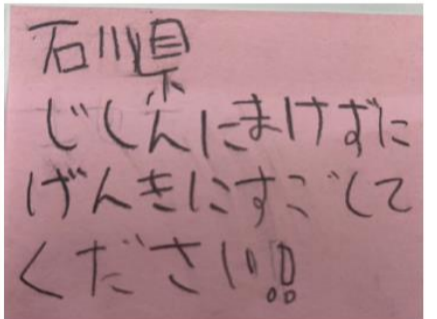 石川県
じしんにまけずに
げんきにすごして
ください!!